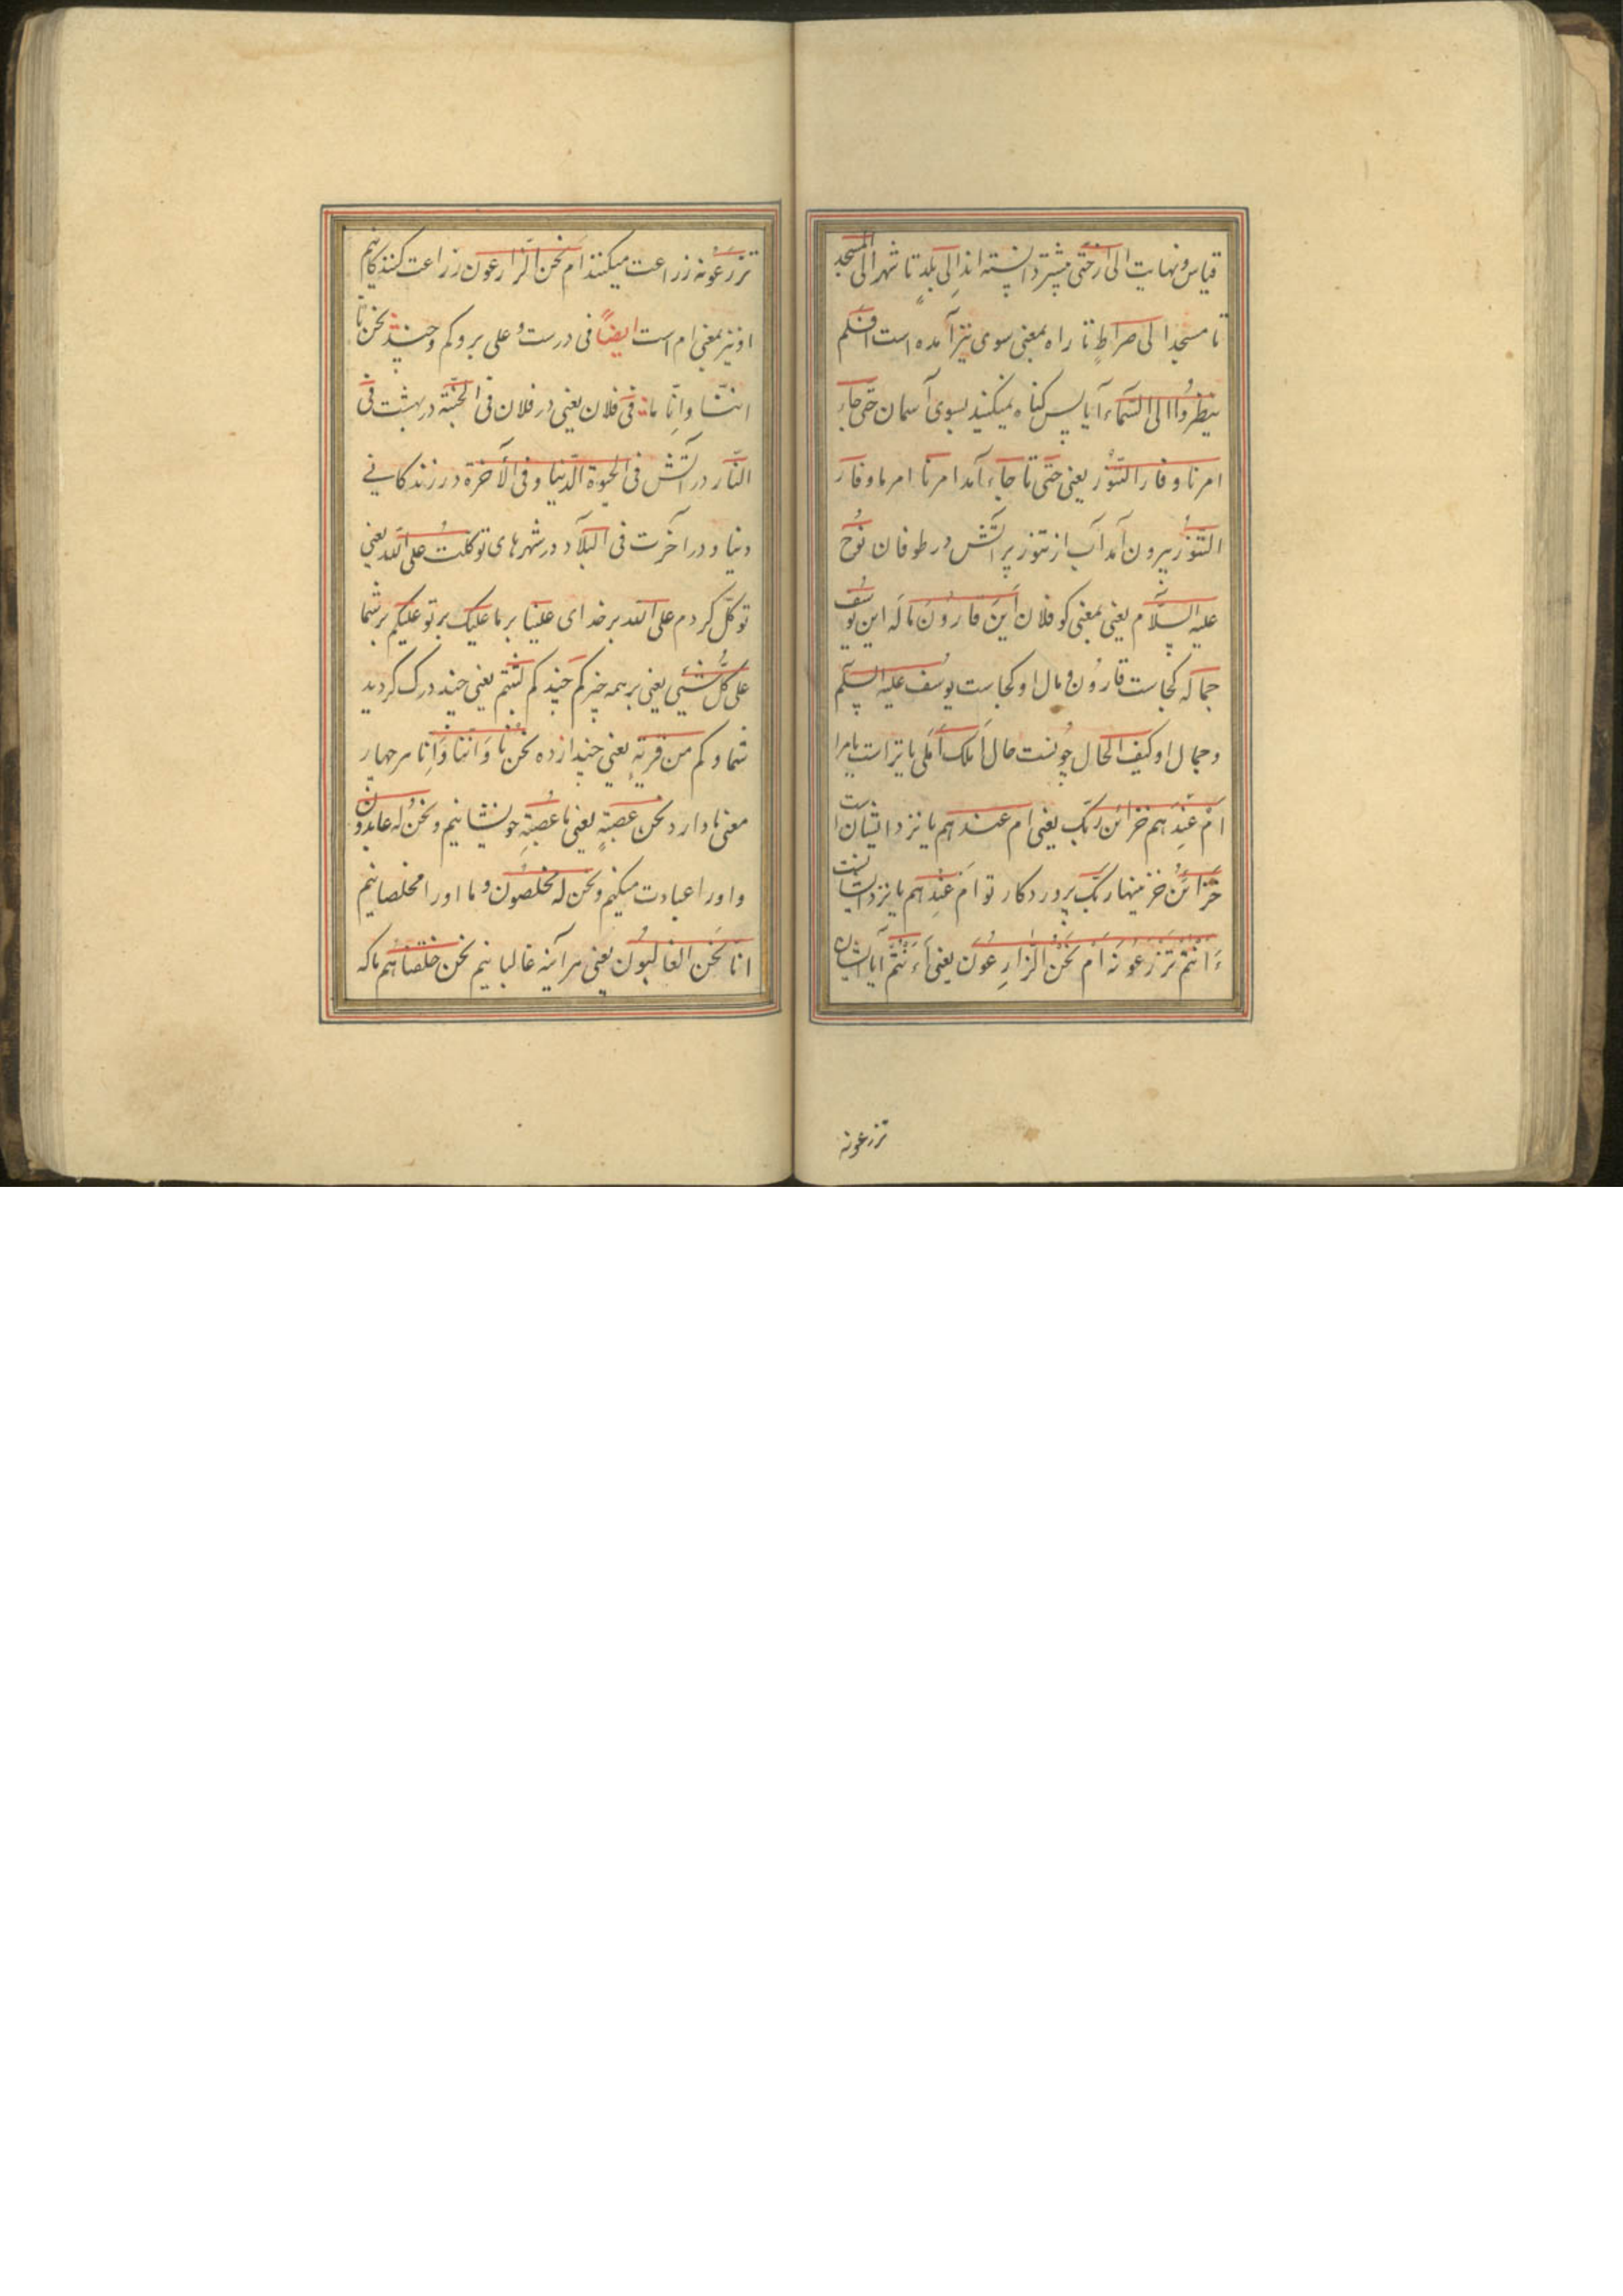 قیاس و نهایت الی از حتّی بیشتر دانسته اند اِلی بَلَدٍ تا شهر الی المسجد
تا مسجد الی صراطٍ تا راه بمعنی سوی نیز آمده است افلم
ینظروُا الی السّمآء آیا پس نگاه نمیکنند بسوی آسمان حتّی جاء
امرنا و فار التّنوّر یعنی حتّی تا جآء آمد امرنا امر ما و فار
التنوُّر بیرون آمد آب از تنور پر آتش در طوفان نوُح
علیه السّلام یعنی بمعنی کو فلان اَینَ قارُونَ مالَه این یوسُف
جماله کجاست قارُون و مال او و کجاست یوُسف علیه السلّم
و جمال او کیف الحال چونست حال اَمْ لک اَم لی یا تراست یا مرا
اَمْ عِنْدَهم خزائن ربّک یعنی ام عندهم یا نزد ایشان است
خزَائنُ خزینها ربّک پروردکار تو اَمْ عِنْدَهم یا نزد ایشانست
ءَاَنْتُمْ تَزْرَعُونَه اَمْ نَحْنُ الزّارِعُوَن یعنی أءَنْتُمْ آیا ایشان
تزرعونه
تزرَعُونه زراعت میکنند اَم نحن الزّارعون زراعت کنندکانیم
او نیز بمعنی ام است ایضاً فی در است و علی بر و کم و چند نحن نا
اننّا و اِنّا ما فی فلان یعنی در فلان فی الجنّة در بهشت فی
النّار در آتش فی الحیوة الدّنیا و فی الأخرة در زندکانی
دنیا و در آخرت فی البلآد در شهرهای توکلتُ علی الله یعنی
توکلّ کردم علی الله بر خدای علینا بر ما علیک بر تو علیکم بر شما
علی کلّ شیئی یعنی بر همه چیز کم چند کم لبثتم یعنی چند درنک کردید
شما و کم من قریةٍ یعنی چند از ده نحنُ نا وَ اننّا وَ اِنا هر چهار
معنی ما دارد نحن عصبةٍ یعنی ما عصبُةِ خویشانیم و نحن لَه عابدوُن
و او را عبادت میکنیم و نحن له مخلصُون و ما او را مخلصانیم
انّا لنَحن الغالبُون یعنی هر آینه غالبانیم نحن خلقناهُم ما که